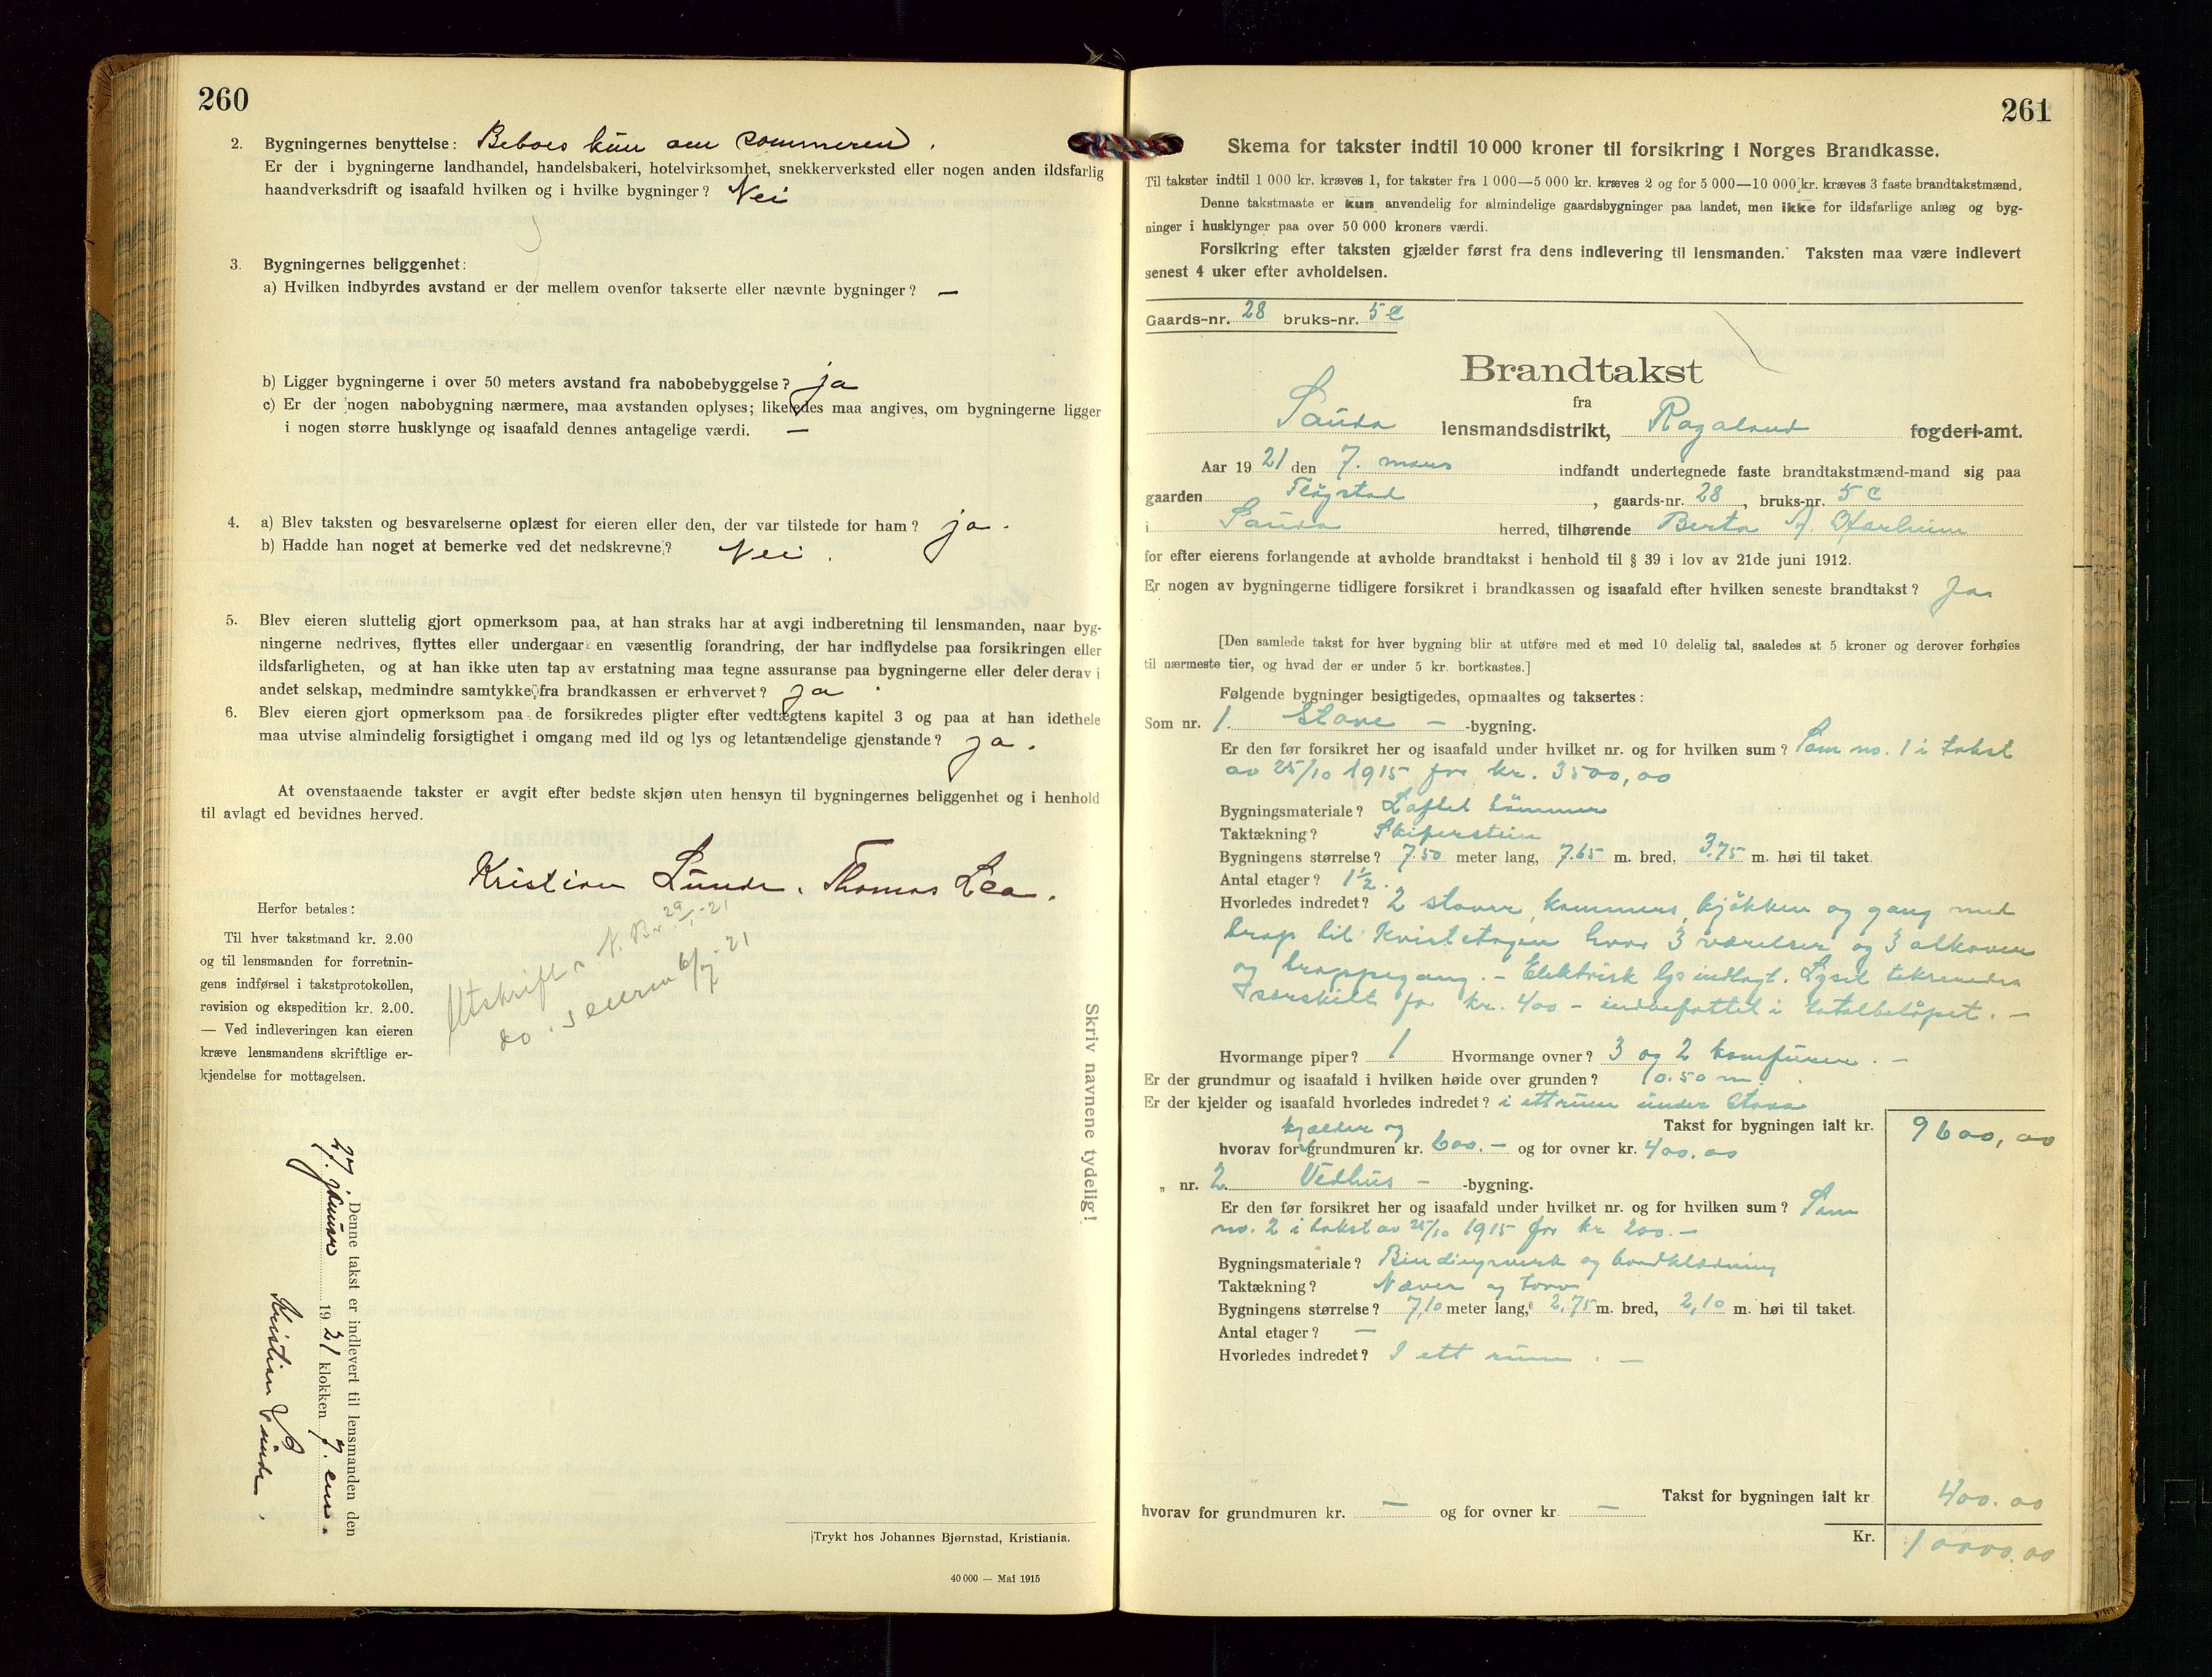 260
2. Bygningernes benyttelse: Beboes kun om sommeren.
Er der i bygningerne landhandel, handelsbakeri, hotelvirksomhet, snekkerverksted eller nogen anden ildsfarlig
haandverksdrift og isaafald hvilken og i hvilke bygninger? Nei
3. Bygningernes beliggenhet:
a) Hvilken indbyrdes avstand er der mellem ovenfor takserte eller nævnte bygninger? —
b) Ligger bygningerne i over 50 meters avstand fra nabobebyggelse? ja
c) Er der nogen nabobygning nærmere, maa avstanden oplyses; likeledes maa angives, om bygningerne ligger
i nogen større husklynge og isaafald dennes antagelige værdi. —
4. a) Blev taksten og besvarelserne oplæst for eieren eller den, der var tilstede for ham? ja.
b) Hadde han noget at bemerke ved det nedskrevne? Nei.
5. Blev eieren sluttelig gjort opmerksom paa, at han straks har at avgi indberetning til lensmanden, naar byg-
ningerne nedrives, flyttes eller undergaar en væsentlig forandring, der har indflydelse paa forsikringen eller
ildsfarligheten, og at han ikke uten tap av erstatning maa tegne assuranse paa bygningerne eller deler derav i
andet selskap, medmindre samtykke fra brandkassen er erhvervet? ja
6. Blev eieren gjort opmerksom paa de forsikredes pligter efter vedtægtens kapitel 3 og paa at han idethele
maa utvise almindelig forsigtighet i omgang med ild og lys og letantændelige gjenstande? ja.
At ovenstaaende takster er avgit efter bedste skjøn uten hensyn til bygningernes beliggenhet og i henhold
til avlagt ed bevidnes herved.
Kristian Lunde. Thomas Lea.
Herfor betales:
Til hver takstmand kr. 2.00
og til lensmanden for forretnin-
gens indførsel i takstprotokollen,
revision og ekspedition kr. 2.00.
— Ved indleveringen kan eieren
kræve lensmandens skriftlige er-
kjendelse for mottagelsen.
Utskrift N. Br. 29/1-21
do. eieren 6/7-21
Skriv navnene tydelig!
Denne takst er indlevert til lensmanden den
27. januar 1921 klokken 7. em.
Kristian Lunde.
Trykt hos Johannes Bjørnstad, Kristiania.
40 000 — Mai 1915
261
Skema for takster indtil 10 000 kroner til forsikring i Norges Brandkasse.
Til takster indtil 1 000 kr. kræves 1, for takster fra 1 000—5 000 kr. kræves 2 og for 5 000—10 000 kr. kræves 3 faste brandtakstmænd.
Denne takstmaate er kun anvendelig for almindelige gaardsbygninger paa landet, men ikke for ildsfarlige anlæg og byg-
ninger i husklynger paa over 50 000 kroners værdi.
Forsikring efter taksten gjælder først fra dens indlevering til lensmanden. Taksten maa være indlevert
senest 4 uker efter avholdelsen.
Gaards-nr. 28 bruks-nr. 5 c
Brandtakst
fra
Sauda lensmandsdistrikt, Rogaland fogderi-amt.
Aar 1921 den 7. mars indfandt undertegnede faste brandtakstmænd-mand sig paa
gaarden Fløgstad, gaards-nr. 28, bruks-nr. 5 c
i Sauda herred, tilhørende Berta A. Harheim
for efter eierens forlangende at avholde brandtakst i henhold til § 39 i lov av 21de juni 1912.
Er nogen av bygningerne tidligere forsikret i brandkassen og isaafald efter hvilken seneste brandtakst? Ja
[Den samlede takst for hver bygning blir at utføre med et med 10 delelig tal, saaledes at 5 kroner og derover forhøies
til nærmeste tier, og hvad der er under 5 kr. bortkastes.]
Følgende bygninger besigtigedes, opmaaltes og taksertes:
Som nr. 1. Stove - -bygning.
Er den før forsikret her og isaafald under hvilket nr. og for hvilken sum? Som no. 1 i takst
av 25/10 1915 for kr. 3500,00
Bygningsmateriale? Laftet tømmer
Taktækning? Skiferstein
Bygningens størrelse? 7.50 meter lang, 7.65 m. bred, 3.75 m. høi til taket.
Antal etager? 1 1/2.
Hvorledes indredet? 2 stover, kammers, kjøkken og gang med
trap til Kvistetagen hvor 3 værelser og 3 alkover
og trappegang. - Elektrisk lys indlagt. Lyset
særskilt for kr. 400 - indbefattet i totalbeløpet. -
Hvormange piper? 1 Hvormange ovner? 3 og 2 komfurer. -
Er der grundmur og isaafald i hvilken høide over grunden? 0.50 m.
Er der kjelder og isaafald hvorledes indredet? i ett rum under stova
Takst for bygningen ialt kr. 9600,00
kjælder og
hvorav for grundmuren kr. 600.- og for ovner kr. 400.00
„ nr. 2. Vedhus - -bygning.
Er den før forsikret her og isaafald under hvilket nr. og for hvilken sum? Som
no. 2 i takst av 25/10 1915 for kr 200.-
Bygningsmateriale? Bindingsverk og bordklædning
Taktækning? Næver og torv
Bygningens størrelse? 7,10 meter lang, 2,75 m. bred, 2,10 m. høi til taket.
Antal etager? —
Hvorledes indredet? I ett rum. -
Takst for bygningen ialt kr 400.00
hvorav for grundmuren kr. — og for ovner kr. —
Kr. 10000.00